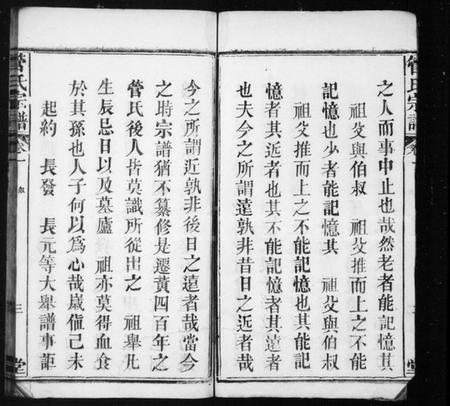 管氏宗譜
卷一
之人而事中止也哉然老者能記憶其
祖父與伯叔 祖父推而上之不能
記憶也少者能記憶其 祖父與伯叔
祖父推而上之不能記憶也其能記
憶者其近者也其不能記憶者其遠者
也夫今之所謂遠孰非昔日之近者哉
堂
今之所謂近孰非後日之遠者哉當今
之時宗譜猶不纂修是遷黃四百年之
管氏後人皆莫識所從出之 祖舉凡
生辰忌日以及墓廬 祖亦莫得血食
於其孫也人子何以為心哉歲僱己未
起約 長發 長元等大舉譜事葕
管氏宗譜
卷一
三
堂